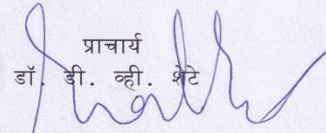 प्राचार्य
डॉ. डी. व्ही. शेटे